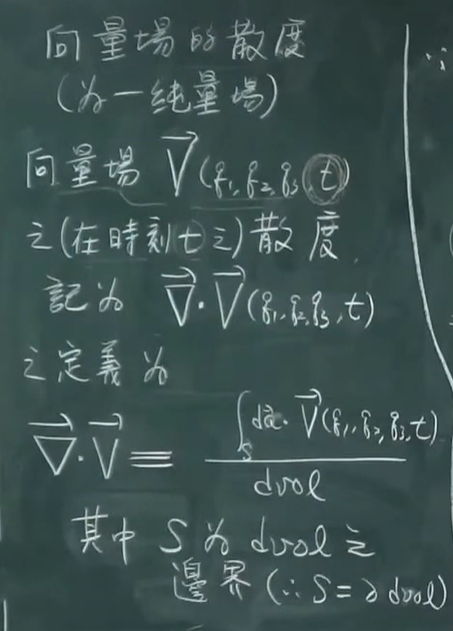 向量場的散度
(為一純量場)
向量場 $\vec{V}(q_1, q_2, q_3, t)$
之(在時刻t之)散度
記為 $\vec{\nabla} \cdot \vec{V}(q_1, q_2, q_3, t)$
之定義為
$\vec{\nabla} \cdot \vec{V} \equiv \frac{\int_S d\vec{a} \cdot \vec{V}(q_1, q_2, q_3, t)}{dvol}$
其中 S 為 dvol 之
邊界 (∴ S = ∂ dvol)